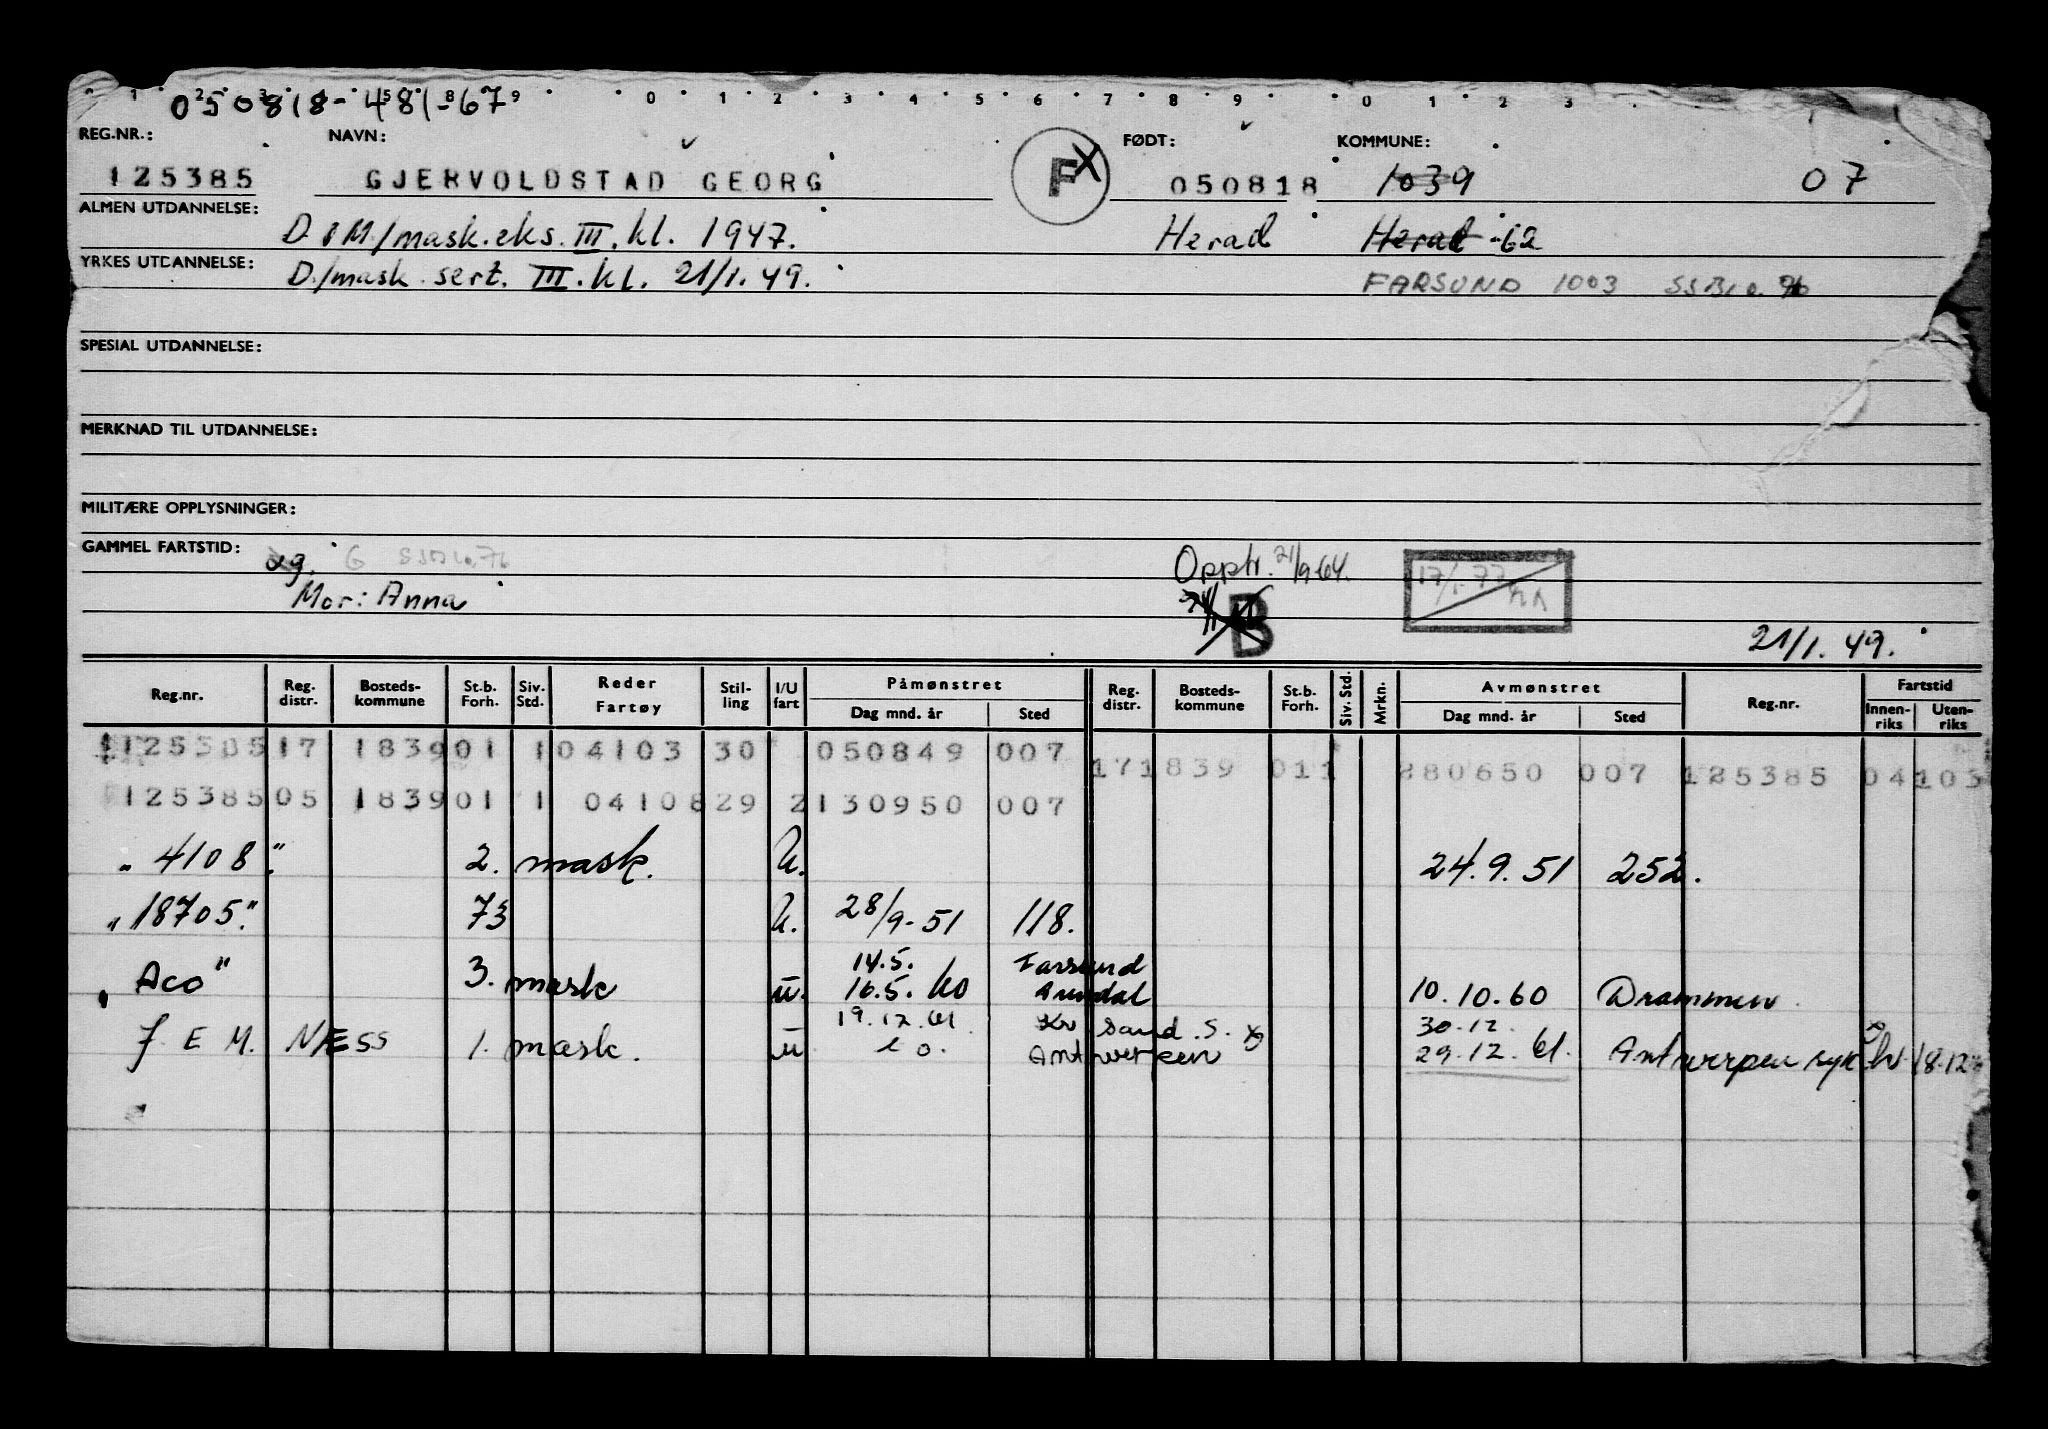 050818-481-67
0 1 2 3 4 5 6 7 8 9 0 1 2 3
REG.NR.: NAVN: FØDT: KOMMUNE:
125385 GJERVOLDSTAD GEORG F X 050818 1039 07
ALMEN UTDANNELSE: D. & M./mask.eks. III. kl. 1947. Herad Herad -62
YRKES UTDANNELSE: D./mask. sert. III. kl. 21/1. 49. FARSUND 1003
SPESIAL UTDANNELSE:
MERKNAD TIL UTDANNELSE:
MILITÆRE OPPLYSNINGER:
GAMMEL FARTSTID: ug. G Opptr. 21/9 64. 17/1. 77
Mor: Anna B
21/1. 49.
Reg.nr. Reg. distr. Bosteds-kommune St.b. Forh. Siv. Std. Reder Fartøy Stil-ling I/U fart Påmønstret Dag mnd. år Sted Reg. distr. Bosteds-kommune St.b. Forh. Siv. Std. Mrkn. Avmønstret Dag mnd. år Sted Reg.nr. Fartstid Innen-riks Uten-riks
125385 17 1839 01 1 04103 30 050849 007
171839 011 280650 007 125385 04103
125385 05 1839 01 1 04108 29 2 130950 007
"4108". 2. mask. U. 24.9.51 252.
"18705". 73 U. 28/9-51 118.
14.5. Farsund
"Aco" 3. mask u. 16.5. 60 Arendal 10.10.60 Drammen.
19.12.61. Kr sand. S. 30.12.
J. E M. NÆSS 1. mask. u Antwerpen 29.12.61. Antwerpen syk 18.12